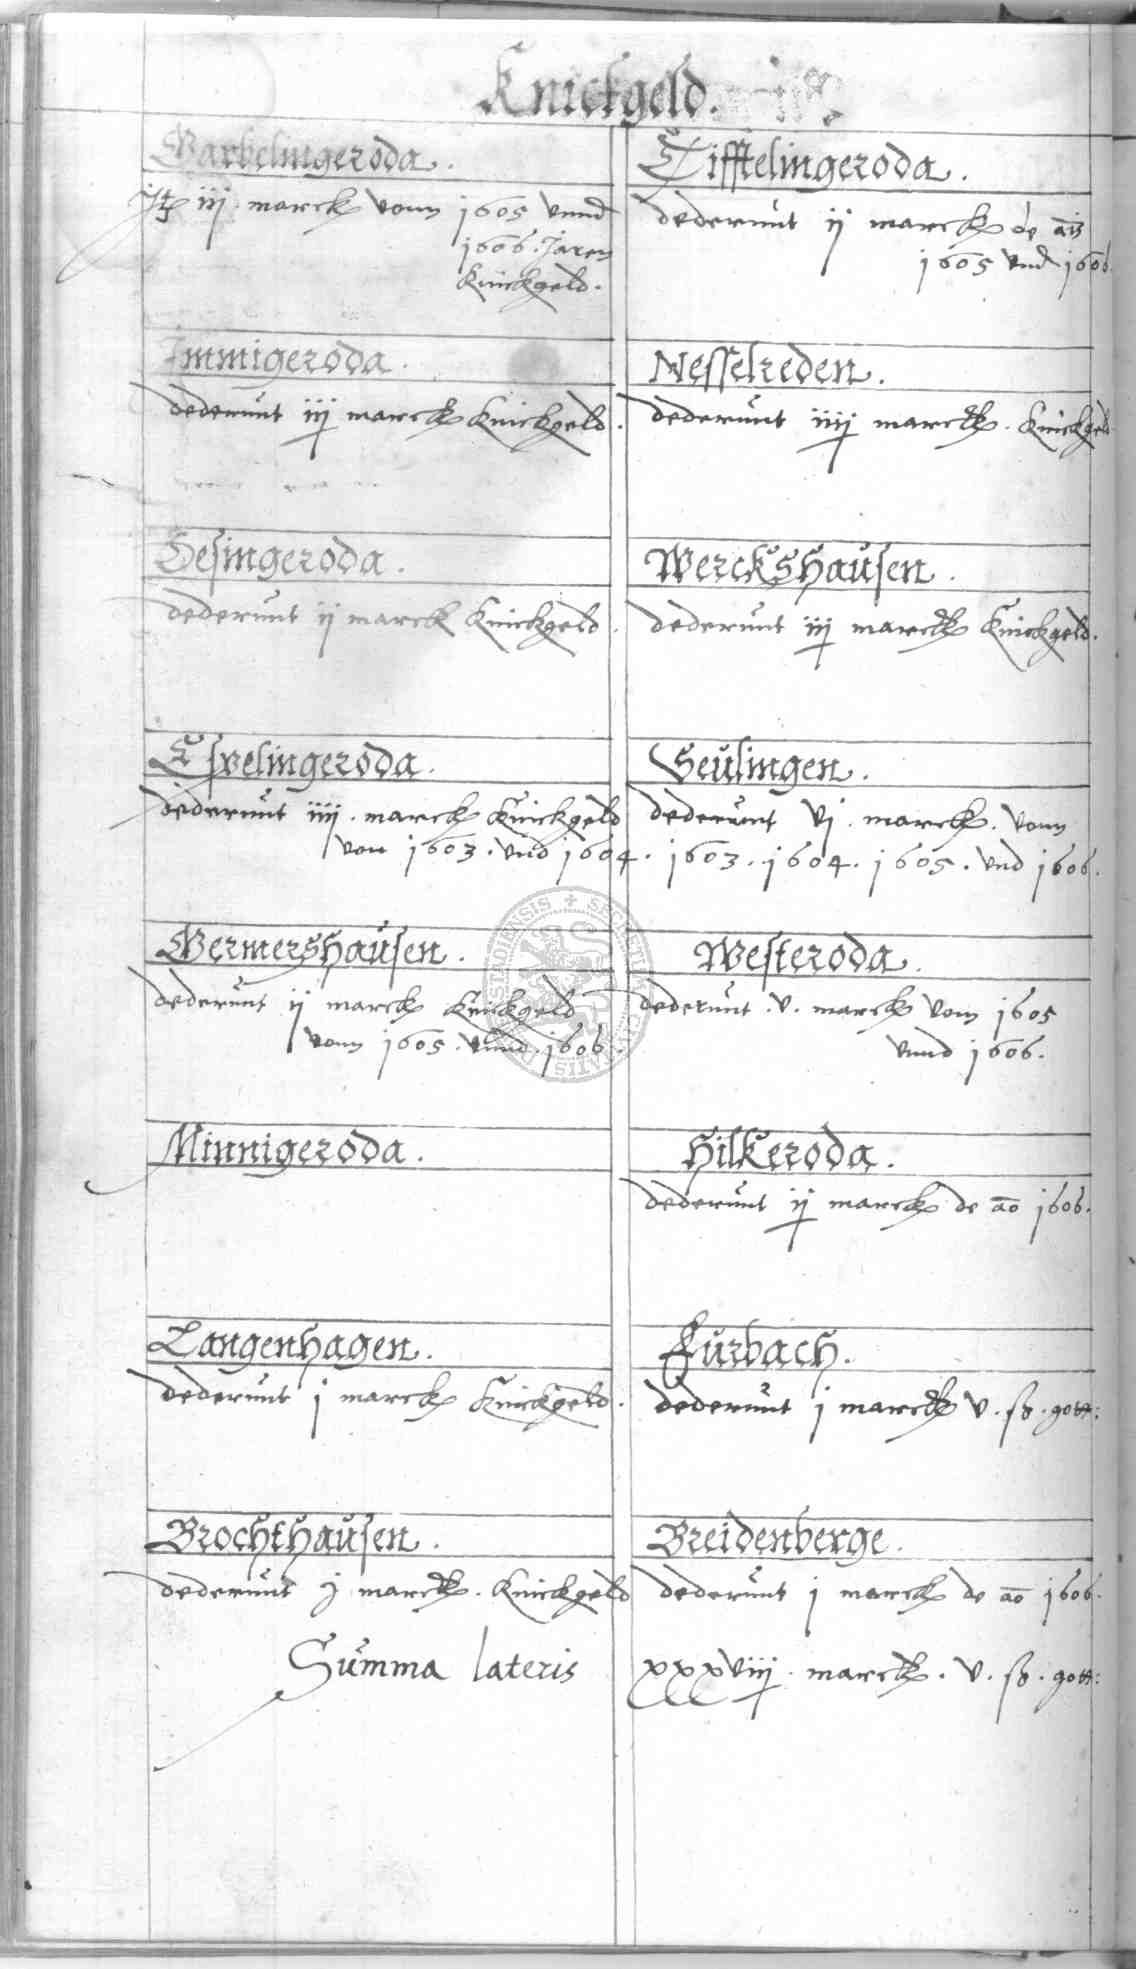 Knickgeld.
Warbelingeroda.
Jtz iij marck vonn 1605 vnnd
1606. Jaren
Knickgeld.
Tifftelingeroda.
dederunt ij marck de ais
1605 vnd 1606
Immigeroda.
dederunt iij marck Knickgeld.
Nesselreden.
dederunt iiij marck. Knickgeld
Desingeroda.
dederunt ij marck Knickgeld.
Werckshausen.
dederunt iij marck Knickgeld.
Esvelingeroda.
dederunt iiij. marck Knickgeld
von 1603. vnd 1604.
Seulingen.
dederunt vj. marck. vonn
1603. 1604. 1605. vnd 1606.
Germershausen.
dederunt ij marck Knickgeld
vonn 1605. vnnd. 1606.
Westeroda.
dederunt. v. marck vom 1605
vnnd 1606.
Minnigeroda.
Hilkeroda.
dederunt ij marck de ao 1606.
Langenhagen.
dederunt j marck Knickgeld.
Furbach.
dederunt j marck v. ß. gott:
Brochthausen.
dederunt j. marck. Knickgeld
Breidenberge.
dederunt j marck de ao 1606.
Summa lateris xxxviij. marck. v. ß. gott: